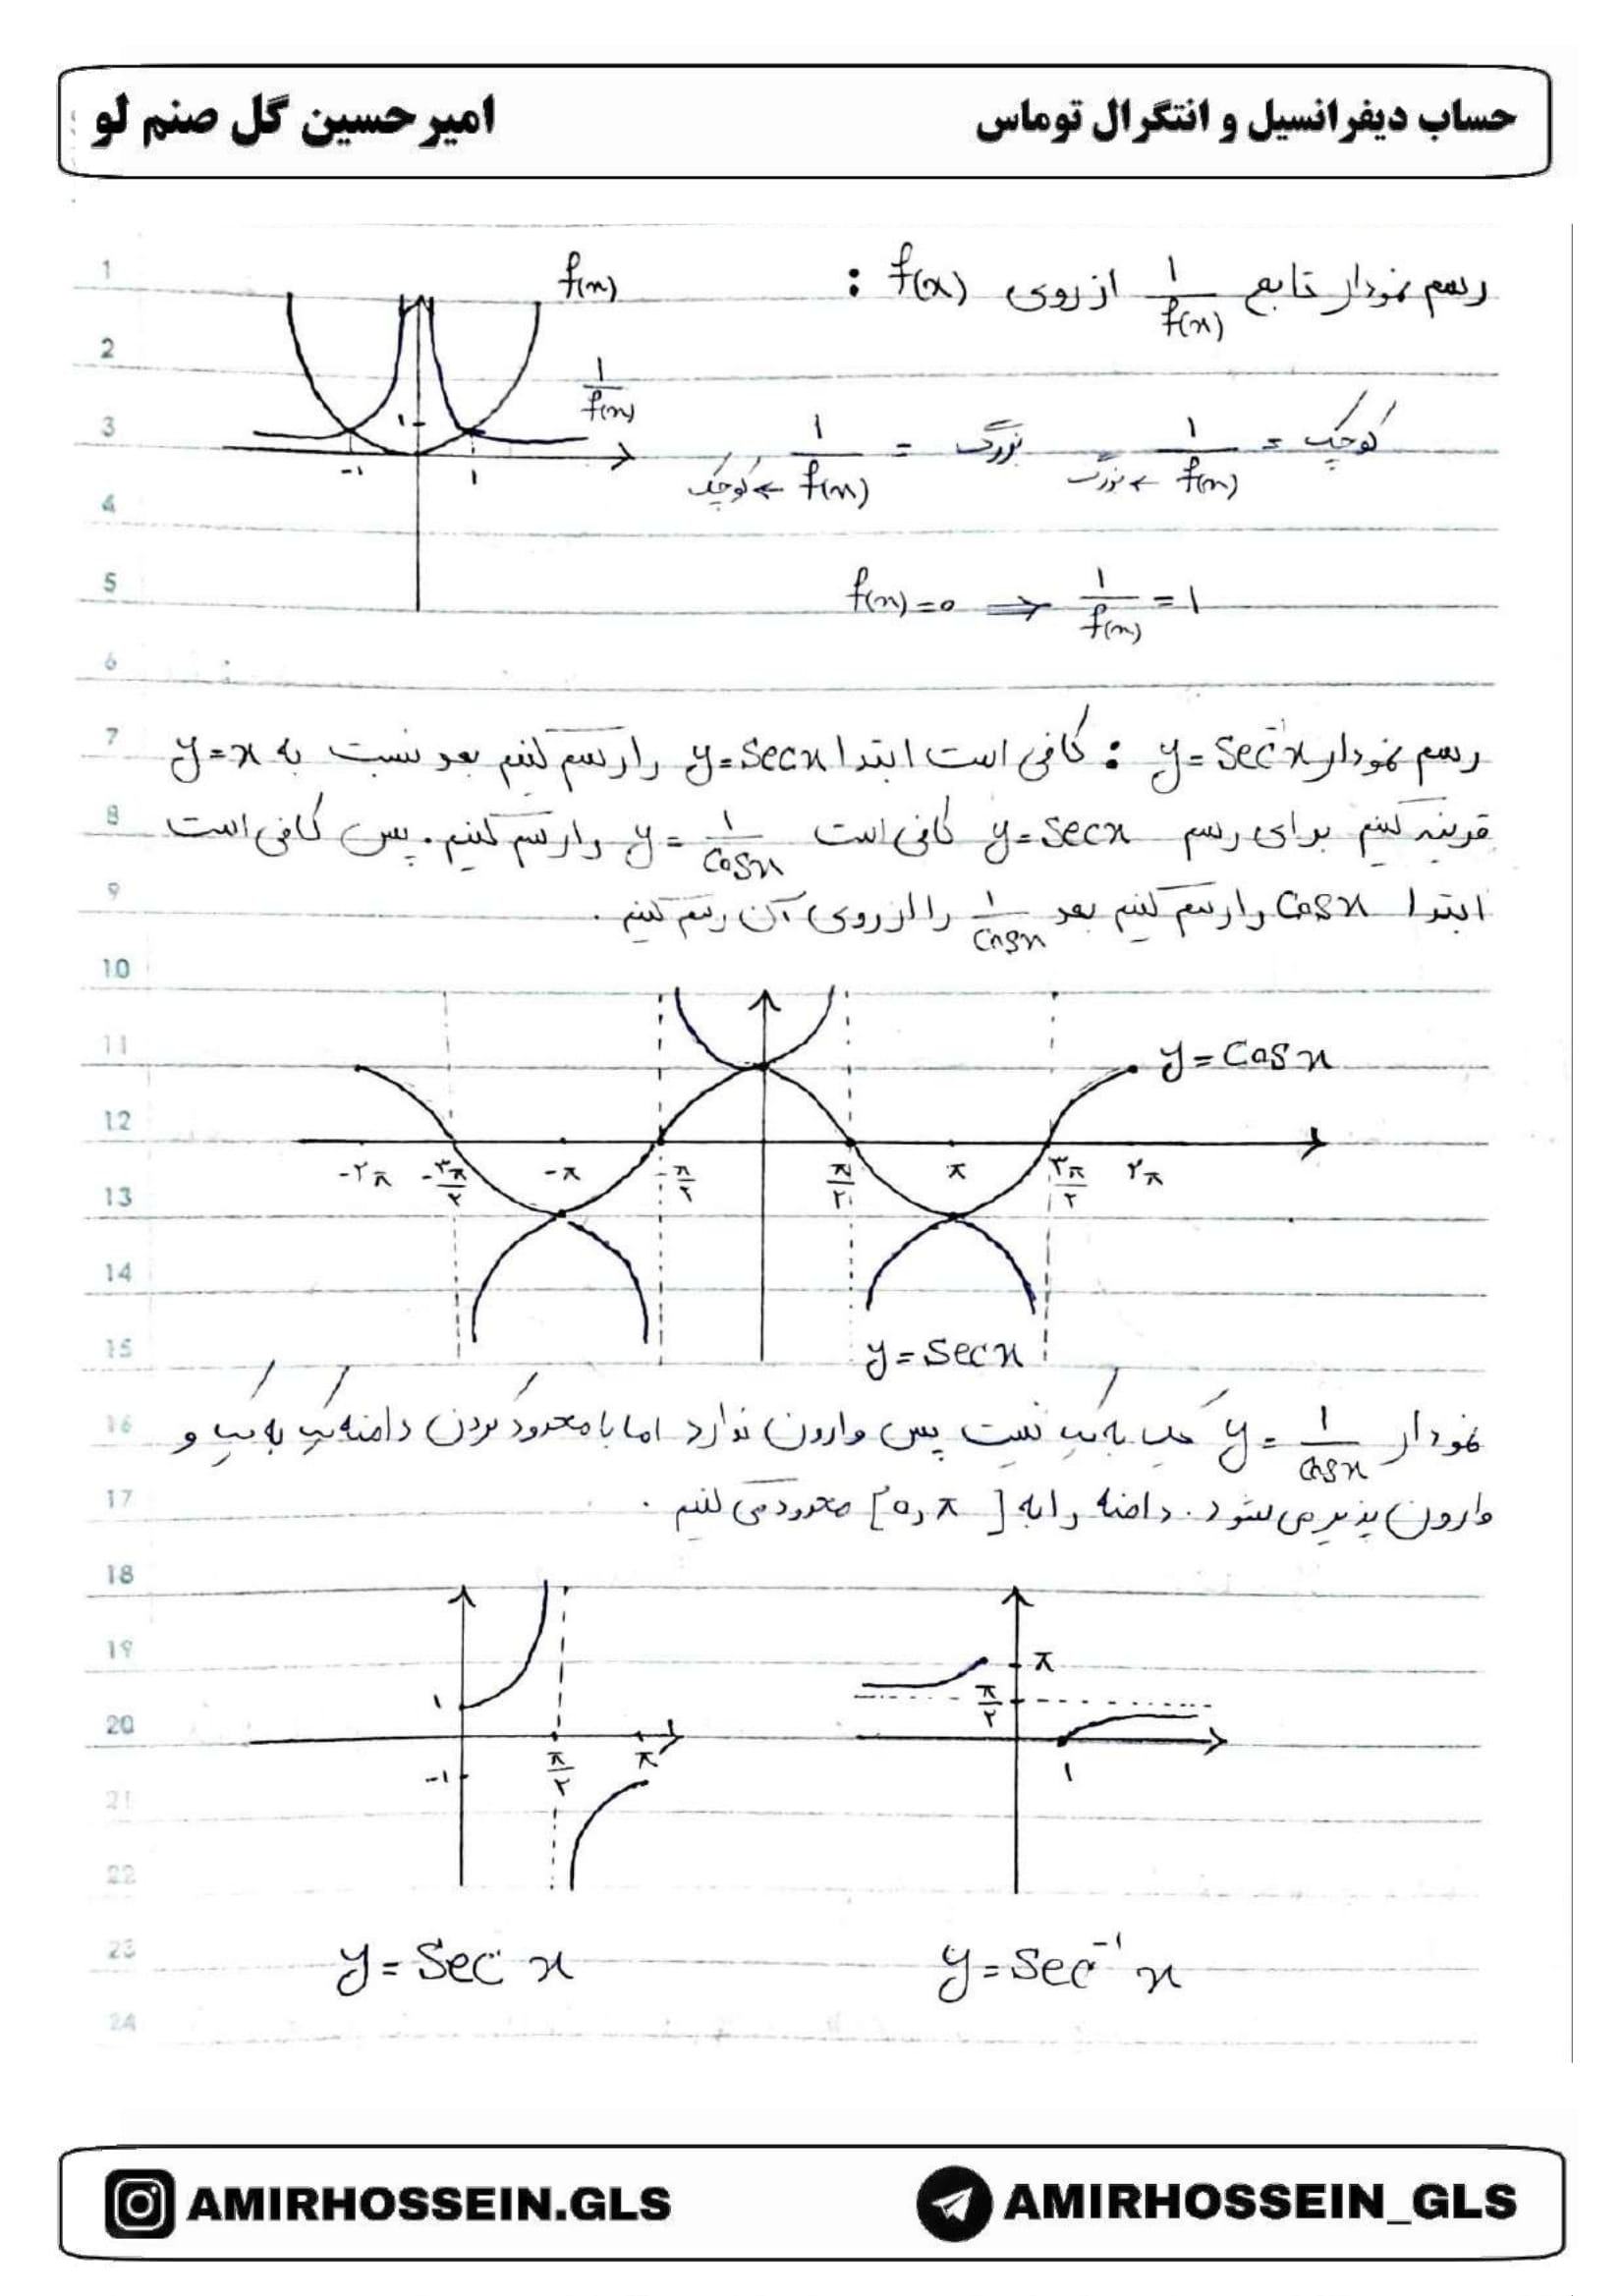 حساب دیفرانسیل و انتگرال توماس
امیرحسین گل صنم لو
رسم نمودار تابع 1/f(x) از روی f(x) :
f(x)
1/f(x)
1
-1
1
1/f(x) = کوچک
f(x) ← بزرگ
1/f(x) = بزرگ
f(x) ← کوچک
f(x)=0 ⇒ 1/f(x) = 1
رسم نمودار y=Sec⁻¹x : کافی است ابتدا y=Secx را رسم کنیم بعد نسبت به y=x
قرینه کنیم برای رسم y=Secx کافی است y=1/Cosx را رسم کنیم. پس کافی است
ابتدا Cosx را رسم کنیم بعد 1/Cosx را از روی آن رسم کنیم.
y=Cosx
-۲π -۳π/۲ -π -π/۲ π/۲ π ۳π/۲ ۲π
y=Secx
نمودار y=1/Cosx یک به یک نیست پس وارون ندارد اما با محدود کردن دامنه یک به یک و
وارون پذیر می شود. دامنه را به [0,π] محدود می کنیم.
1
-1
π/۲ π
π
π/۲
1
y=Sec x
y=Sec⁻¹ x
1
2
3
4
5
6
7
8
9
10
11
12
13
14
15
16
17
18
19
20
21
22
23
24
AMIRHOSSEIN.GLS
AMIRHOSSEIN_GLS